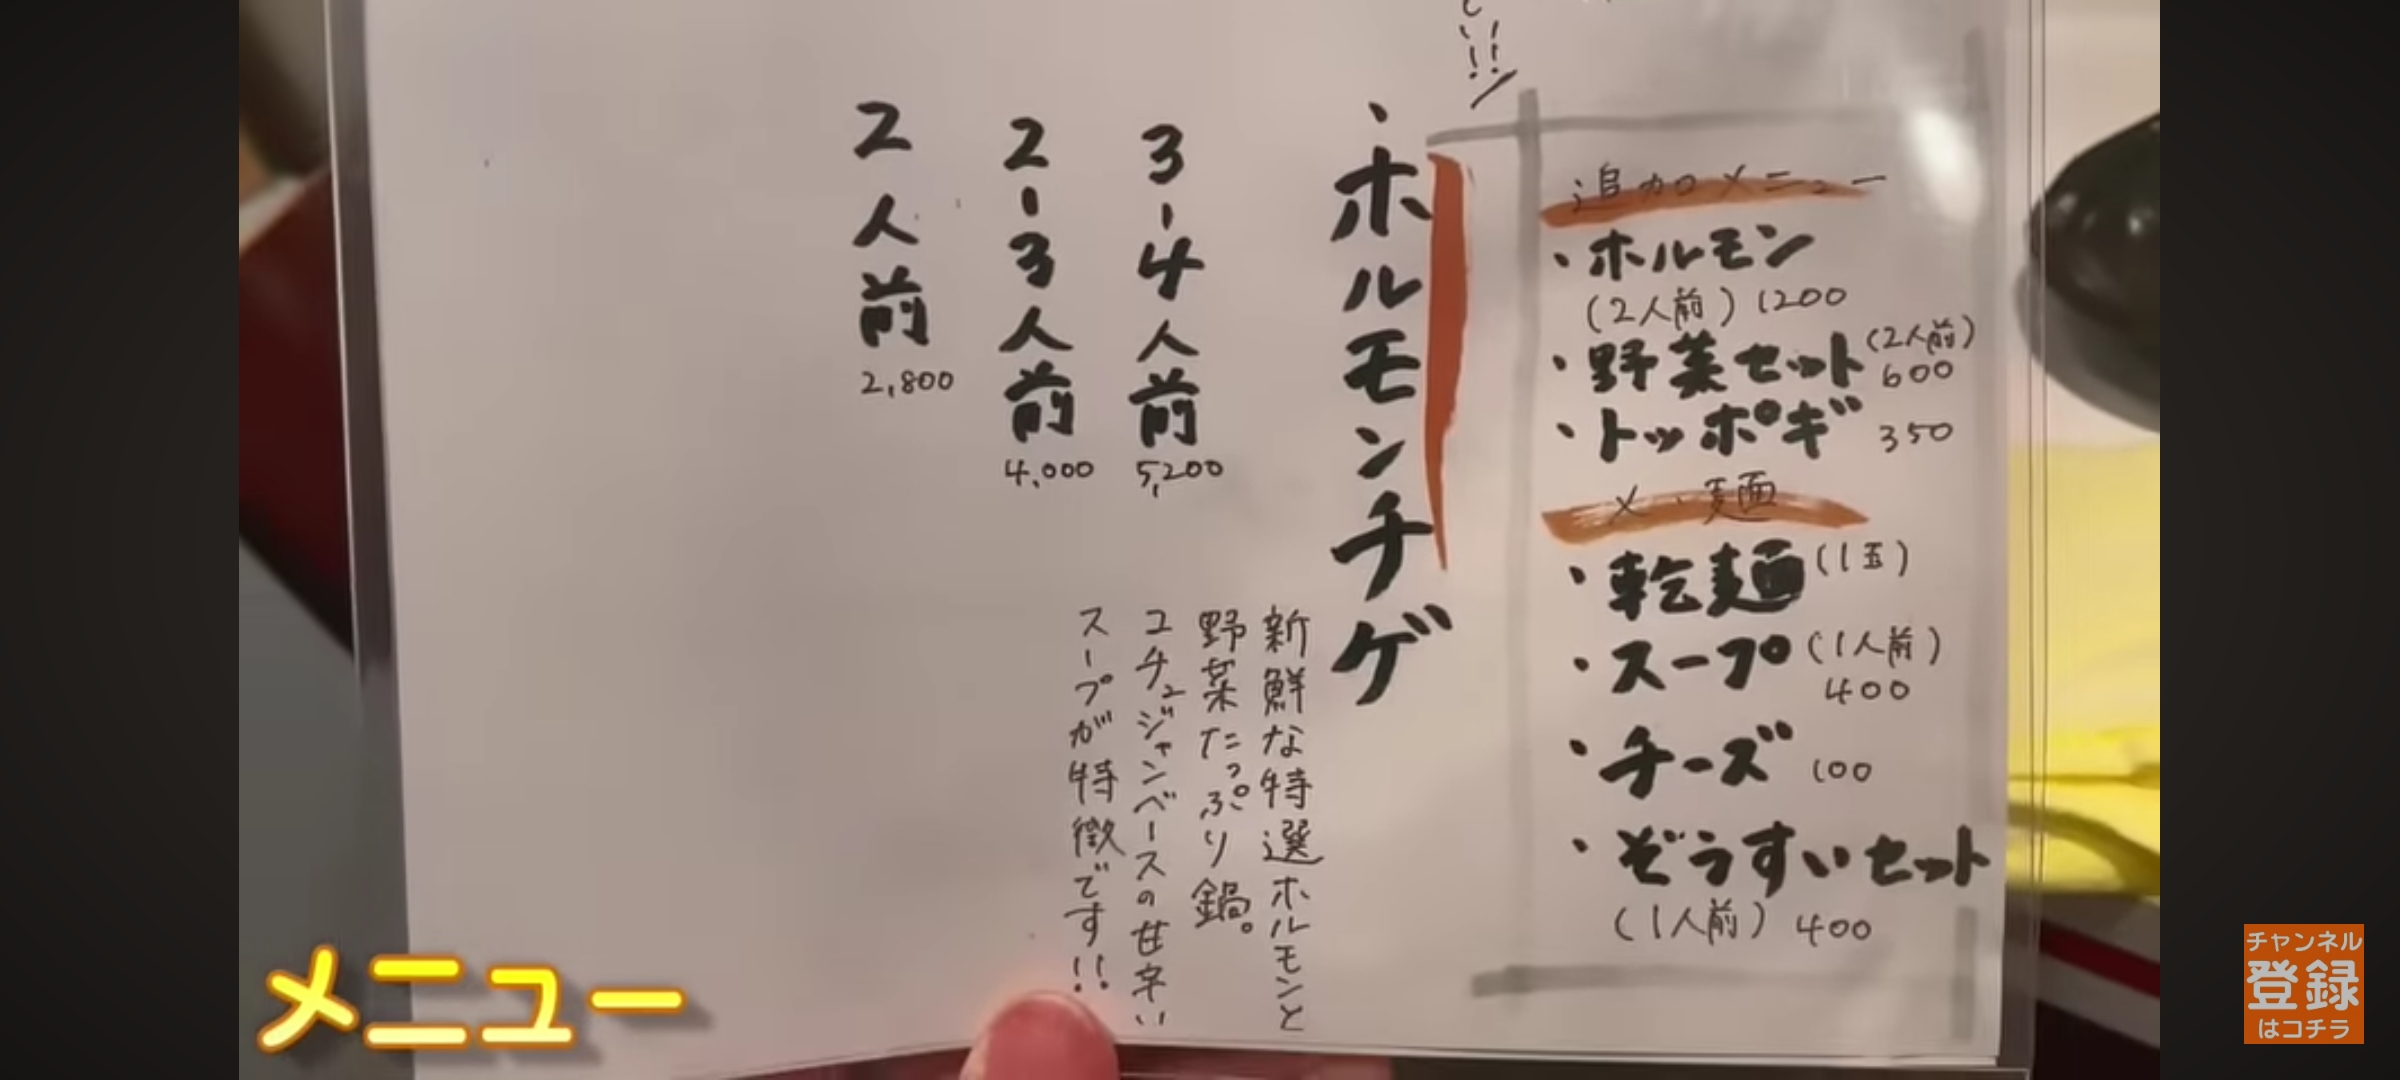 い!!
追加メニュー
・ホルモン
(2人前) 1200
・野菜セット (2人前)
600
・トッポギ 350
〆・麺
・乾麺 (1玉)
・スープ (1人前)
400
・チーズ 100
・ぞうすいセット
(1人前) 400
・ホルモンチゲ
新鮮な特選ホルモンと
野菜たっぷり鍋。
コチュジャンベースの甘辛い
スープが特徴です!!
3-4人前 5,200
2-3人前 4,000
2人前 2,800
メニュー
チャンネル
登録
はコチラ